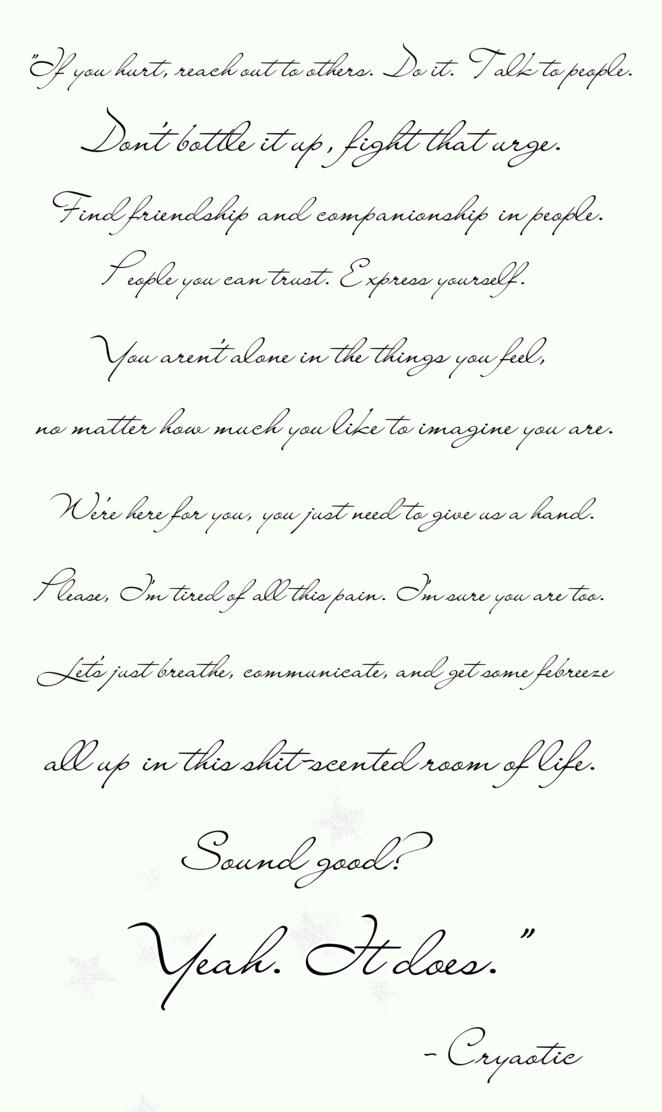 "If you hurt, reach out to others. Do it. Talk to people.
Don't bottle it up, fight that urge.
Find friendship and companionship in people.
People you can trust. Express yourself.
You aren't alone in the things you feel,
no matter how much you like to imagine you are.
We're here for you, you just need to give us a hand.
Please, I'm tired of all this pain. I'm sure you are too.
Let's just breathe, communicate, and get some febreeze
all up in this shit-scented room of life.
Sound good?
Yeah. It does."
- Cryaotic